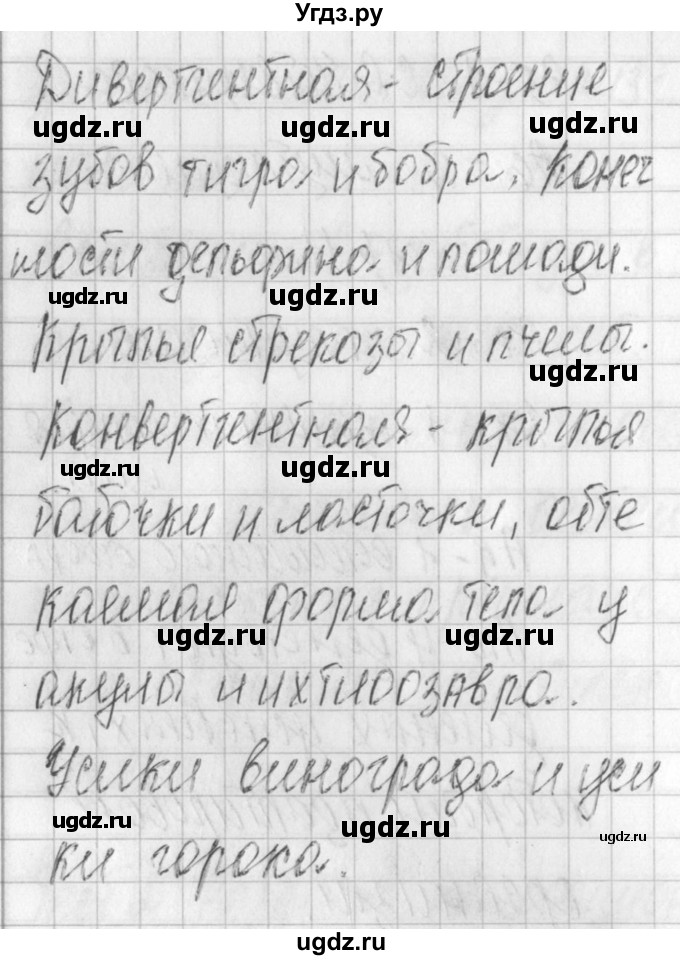 Угдз.ру
Дивергентная - строение
ugdz.ru ugdz.ru ugdz.ru
зубов тигра и бобра, конеч
ности дельфина и лошади.
ugdz.ru ugdz.ru
Крылья стрекозы и пчелы.
ugdz.ru
Конвергентная - крылья
ugdz.ru ugdz.ru
бабочки и ласточки, обте
каемая форма тела у
ugdz.ru ugdz.ru
акулы и ихтиозавра.
Усики винограда и уси
ugdz.ru ugdz.ru ugdz.ru
ки гороха.
ugdz.ru